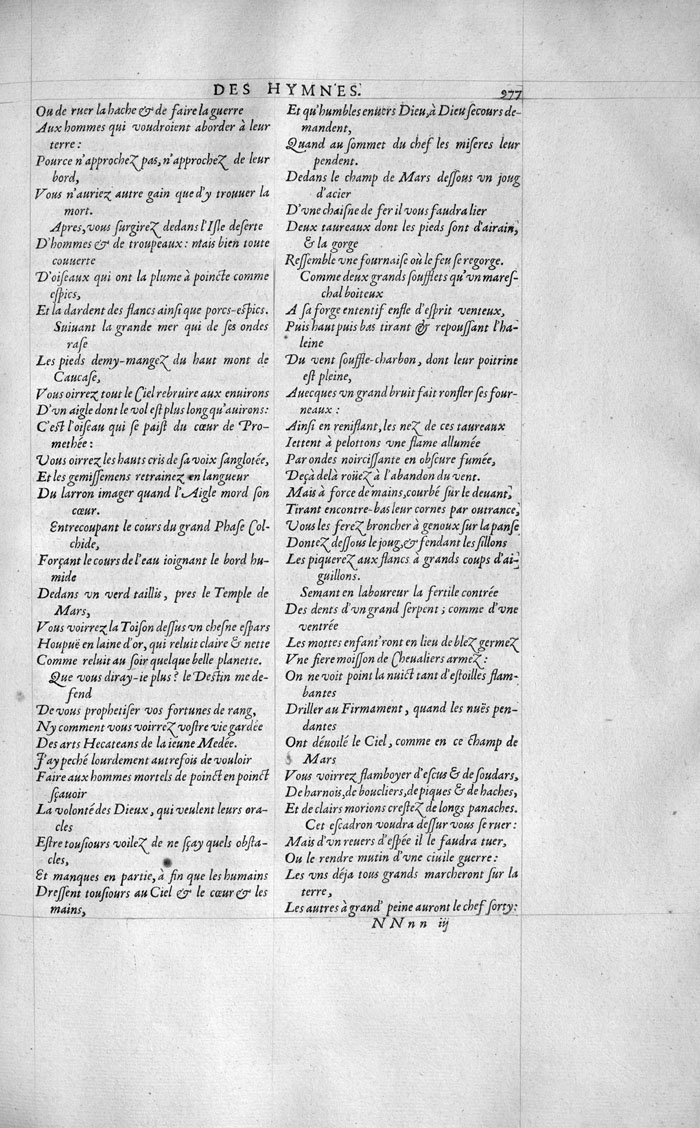 DES HYMNES. 977
Ou de ruer la hache & de faire la guerre
Aux hommes qui voudroient aborder à leur
terre:
Pource n'approchez pas, n'approchez de leur
bord,
Vous n'auriez autre gain que d'y trouuer la
mort.
Apres, vous surgirez dedans l'Isle deserte
D'hommes & de troupeaux: mais bien toute
couuerte
D'oiseaux qui ont la plume à poincte comme
espics,
Et la dardent des flancs ainsi que porcs-espics.
Suiuant la grande mer qui de ses ondes
rase
Les pieds demy-mangez du haut mont de
Caucase,
Vous oirrez tout le Ciel rebruire aux enuirons
D'vn aigle dont le vol est plus long qu'auirons:
C'est l'oiseau qui se paist du cœur de Pro-
methée:
Vous oirrez les hauts cris de sa voix sanglotée,
Et les gemissemens retrainez en langueur
Du larron imager quand l'Aigle mord son
cœur.
Entrecoupant le cours du grand Phase Col-
chide,
Forçant le cours de l'eau ioignant le bord hu-
mide
Dedans vn verd taillis, pres le Temple de
Mars,
Vous voirrez la Toison dessus vn chesne espars
Houpuë en laine d'or, qui reluit claire & nette
Comme reluit au soir quelque belle planette.
Que vous diray-ie plus? le Destin me de-
fend
De vous prophetiser vos fortunes de rang,
Ny comment vous voirrez vostre vie gardée
Des arts Hecateans de la ieune Medée.
J'ay peché lourdement autrefois de vouloir
Faire aux hommes mortels de poinct en poinct
sçauoir
La volonté des Dieux, qui veulent leurs ora-
cles
Estre tousiours voilez de ne sçay quels obsta-
cles,
Et manques en partie, à fin que les humains
Dressent tousiours au Ciel & le cœur & les
mains,
Et qu'humbles enuers Dieu, à Dieu secours de-
mandent,
Quand au sommet du chef les miseres leur
pendent.
Dedans le champ de Mars dessous vn joug
d'acier
D'vne chaisne de fer il vous faudra lier
Deux taureaux dont les pieds sont d'airain,
& la gorge
Ressemble vne fournaise où le feu se regorge.
Comme deux grands soufflets qu'vn mares-
chal boiteux
A sa forge ententif enfle d'esprit venteux,
Puis haut puis bas tirant & repoussant l'ha-
leine
Du vent souffle-charbon, dont leur poitrine
est pleine,
Auecques vn grand bruit fait ronfler ses four-
neaux:
Ainsi en reniflant, les nez de ces taureaux
Iettent à pelottons vne flame allumée
Par ondes noircissante en obscure fumée,
Deçà delà roüez à l'abandon du vent.
Mais à force de mains, courbé sur le deuant,
Tirant encontre-bas leur cornes par outrance,
Vous les ferez broncher à genoux sur la panse
Dontez dessous le joug, & fendant les sillons
Les piquerez aux flancs à grands coups d'ai-
guillons.
Semant en laboureur la fertile contrée
Des dents d'vn grand serpent; comme d'vne
ventrée
Les mottes enfant'ront en lieu de blez germez
Vne fiere moisson de Cheualiers armez:
On ne voit point la nuict tant d'estoilles flam-
bantes
Driller au Firmament, quand les nuës pen-
dantes
Ont déuoilé le Ciel, comme en ce champ de
Mars
Vous voirrez flamboyer d'escus & de soudars,
De harnois, de boucliers, de piques & de haches,
Et de clairs morions crestez de longs panaches.
Cet escadron voudra dessur vous se ruer:
Mais d'vn reuers d'espée il le faudra tuer,
Ou le rendre mutin d'vne ciuile guerre:
Les vns déja tous grands marcheront sur la
terre,
Les autres à grand' peine auront le chef sorty:
NNnn iij